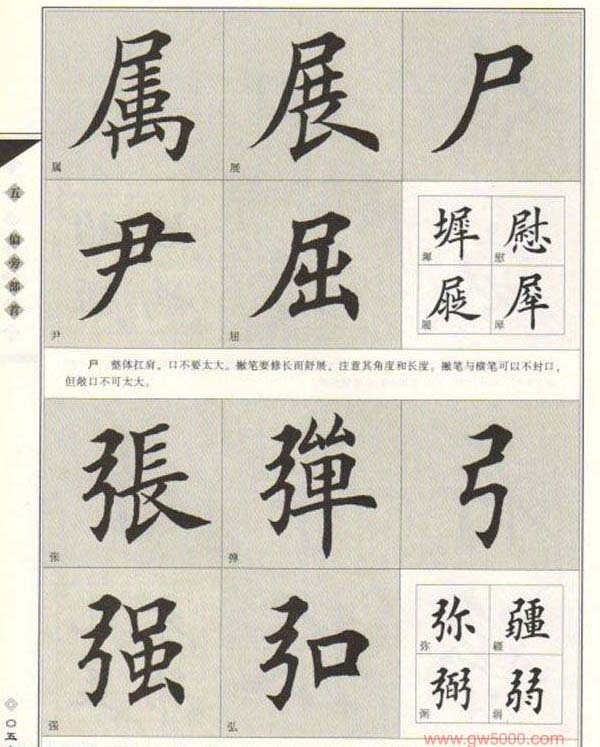 五 偏旁部首
属 展 尸
属 展
尹 屈
尹 屈
墀 慰
墀 慰
屣 犀
屣 犀
尸 整体扛肩，口不要太大。撇笔要修长而舒展，注意其角度和长度。撇笔与横笔可以不封口，
但敞口不可太大。
張 彈 弓
张 弹
强 弘
强 弘
弥 疆
弥 疆
弼 弱
弼 弱
〇五
www.gw5000.com